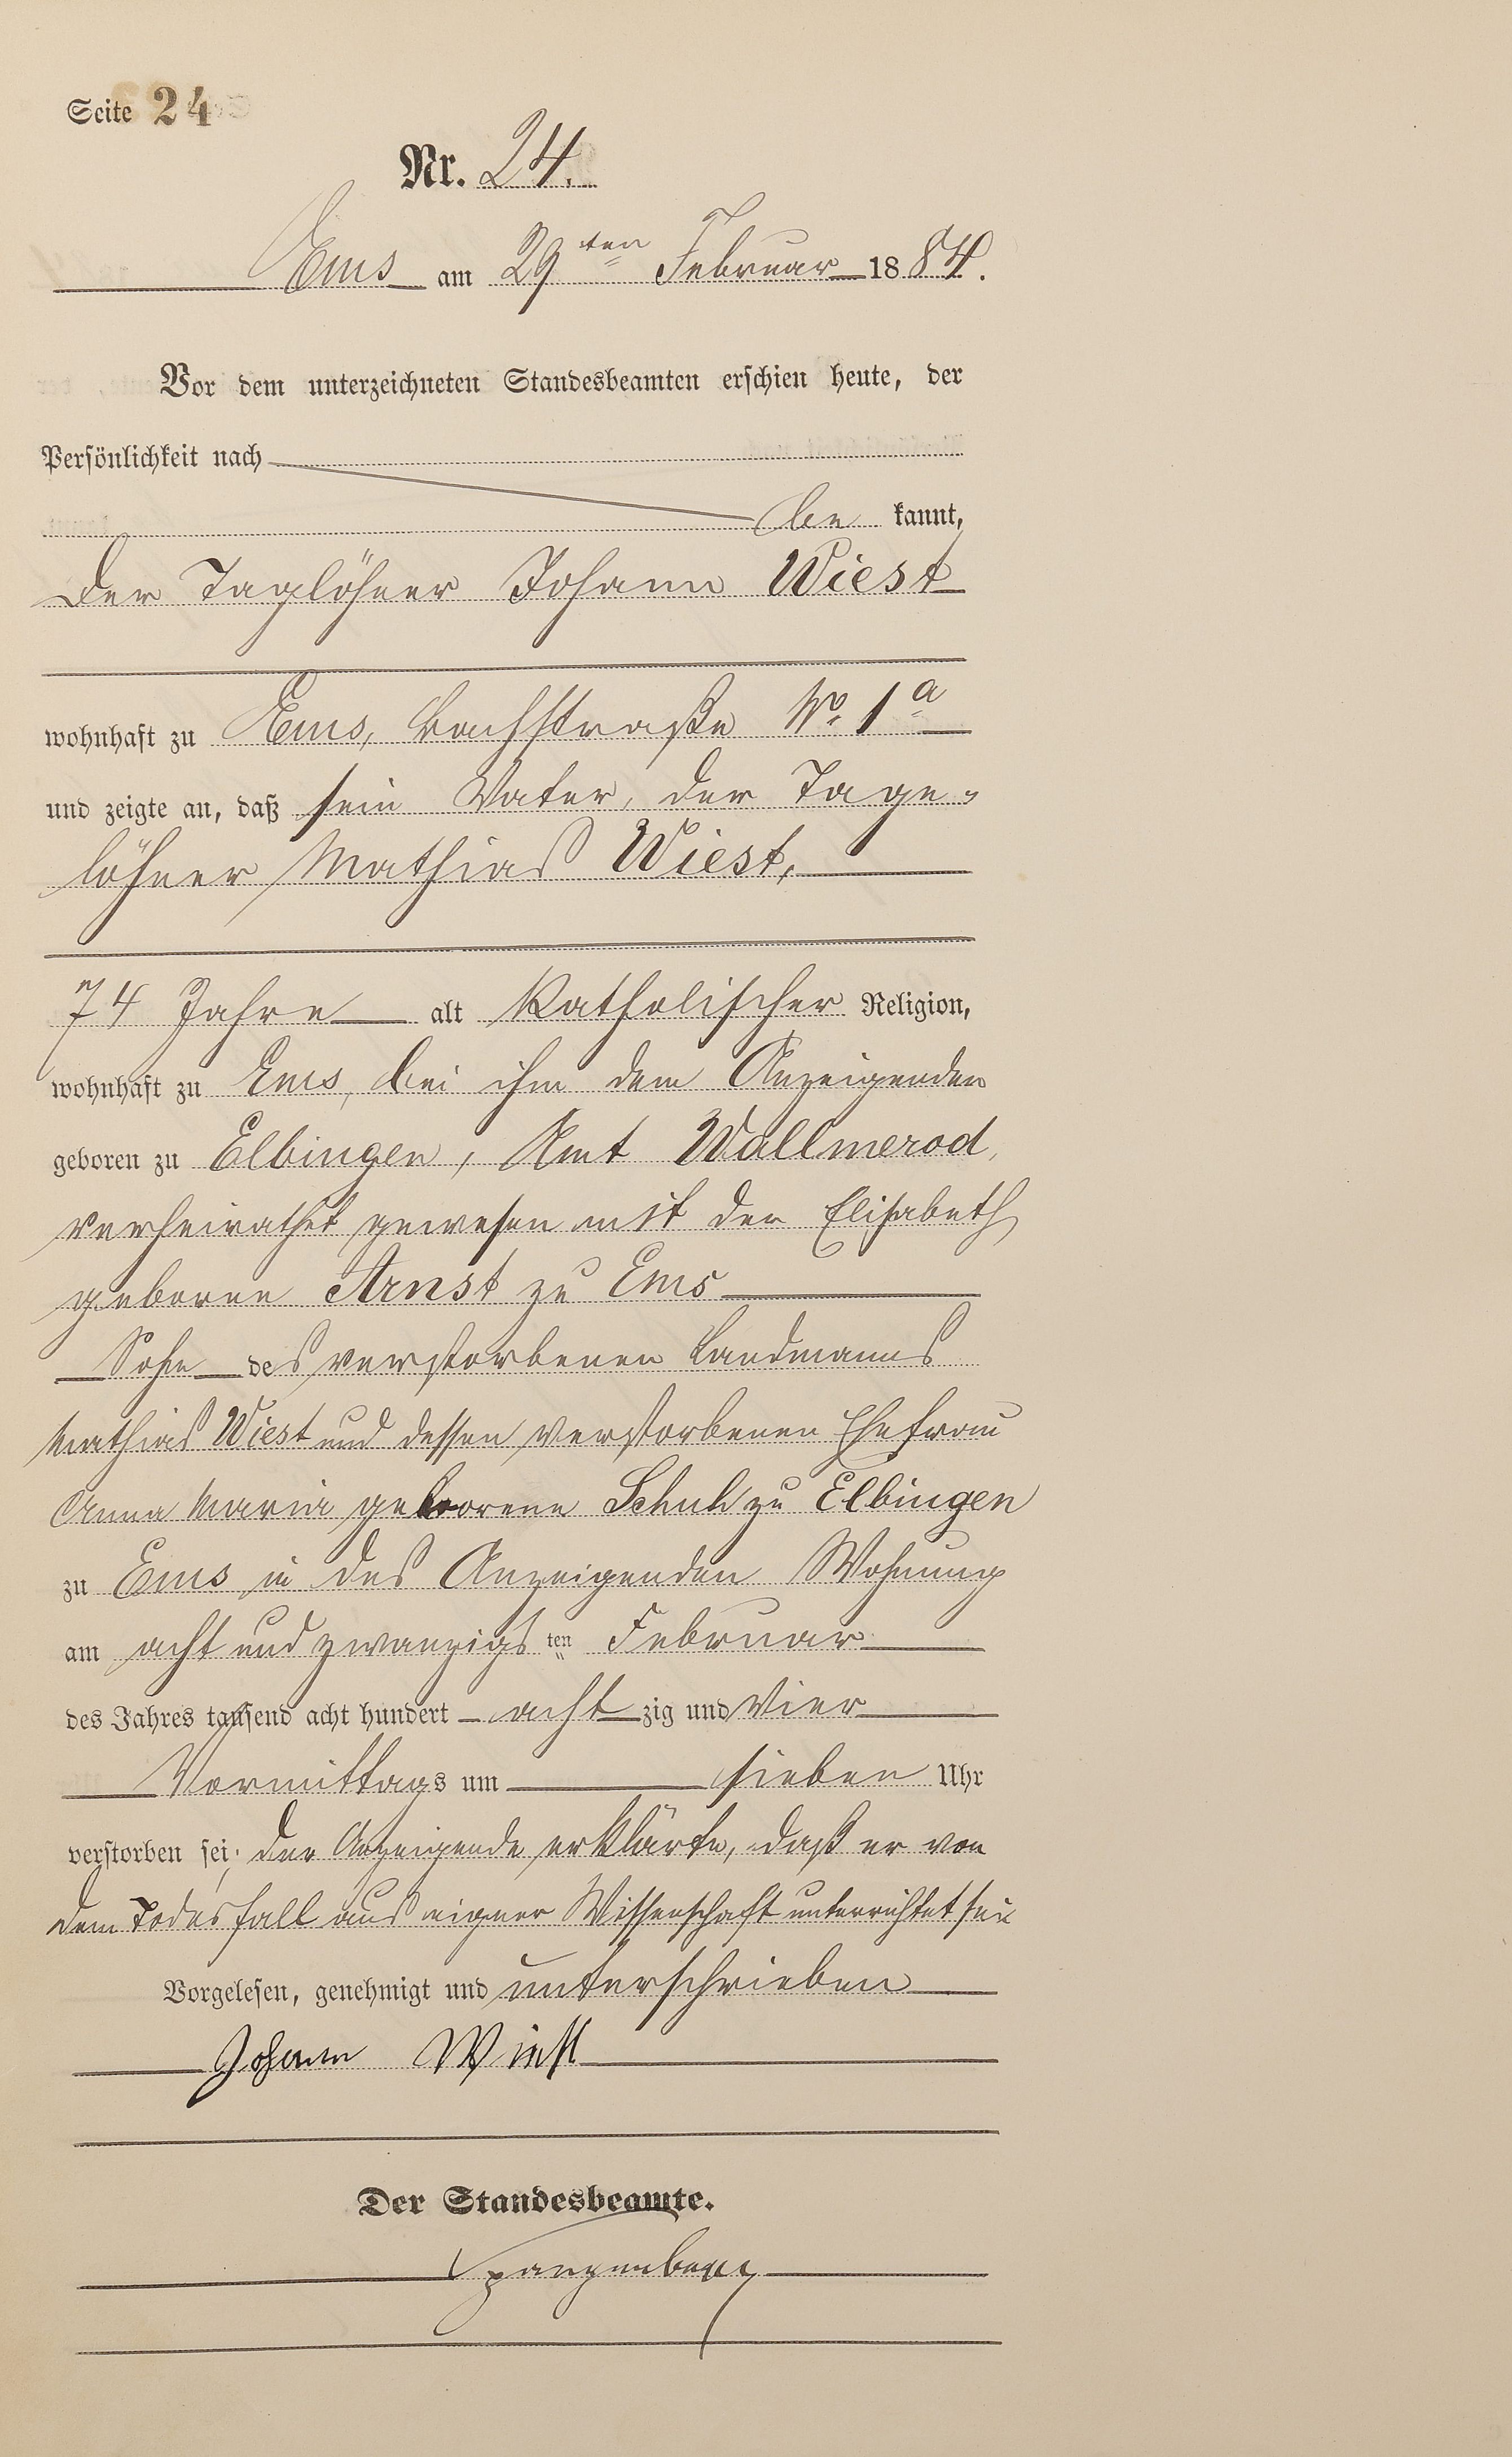 Seite 24
Nr. 24.
Ems am 29ten Februar 1884.
Vor dem unterzeichneten Standesbeamten erschien heute, der
Persönlichkeit nach
be kannt,
der Taglöhner Johann Wiest
wohnhaft zu Ems, Bachstraße No. 1a
und zeigte an, daß sein Vater, der Tage-
löhner Mathias Wiest,
74 Jahre alt Katholischer Religion,
wohnhaft zu Ems, bei ihm dem Anzeigenden
geboren zu Elbingen, Amt Wallmerod,
verheirathet gewesen mit der Elisabeth
geborene Arnst zu Ems
Sohn des verstorbenen Landmanns
Mathias Wiest und dessen verstorbenen Ehefrau
Anna Maria geborene Schuh zu Elbingen
zu Ems in des Anzeigenden Wohnung
am acht und zwanzigsten Februar
des Jahres tausend acht hundert acht zig und vier
Vormittags um sieben Uhr
verstorben sei; der Anzeigende erklärte, daß er von
dem Todesfall aus eigner Wissenschaft unterrichtet sei
Vorgelesen, genehmigt und unterschrieben
Johann Wiest
Der Standesbeamte.
Spangenberg